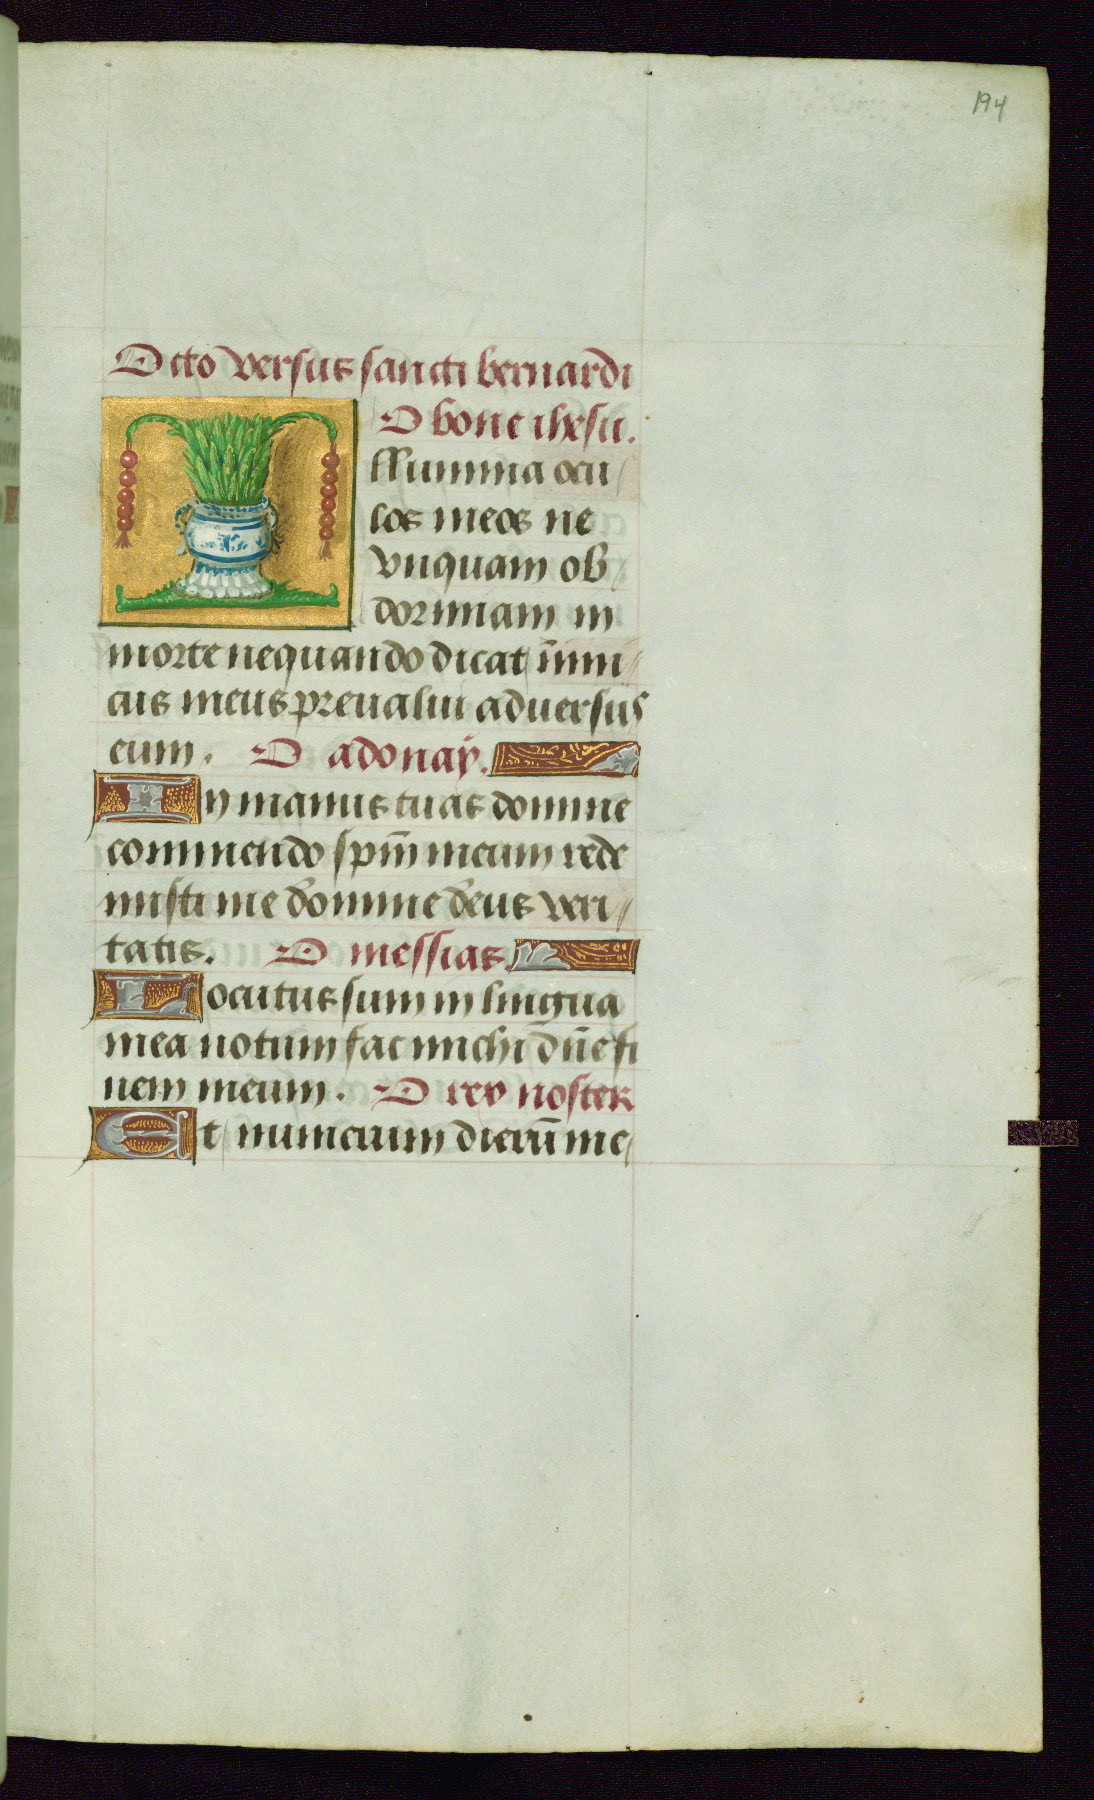 194
Octo versus sancti bernardi
O bone ihesu.
Illumina ocu
los meos ne
vnquam ob
dormiam in
morte nequando dicat inimi
cus meus preualui aduersus
eum. O adonay.
In manus tuas domine
commendo sp̄m meum rede
misti me domine deus veri
tatis. O messias.
Locutus sum in lingua
mea notum fac michi dn̄e fi
nem meum. O rex noster
Et numerum dierū me